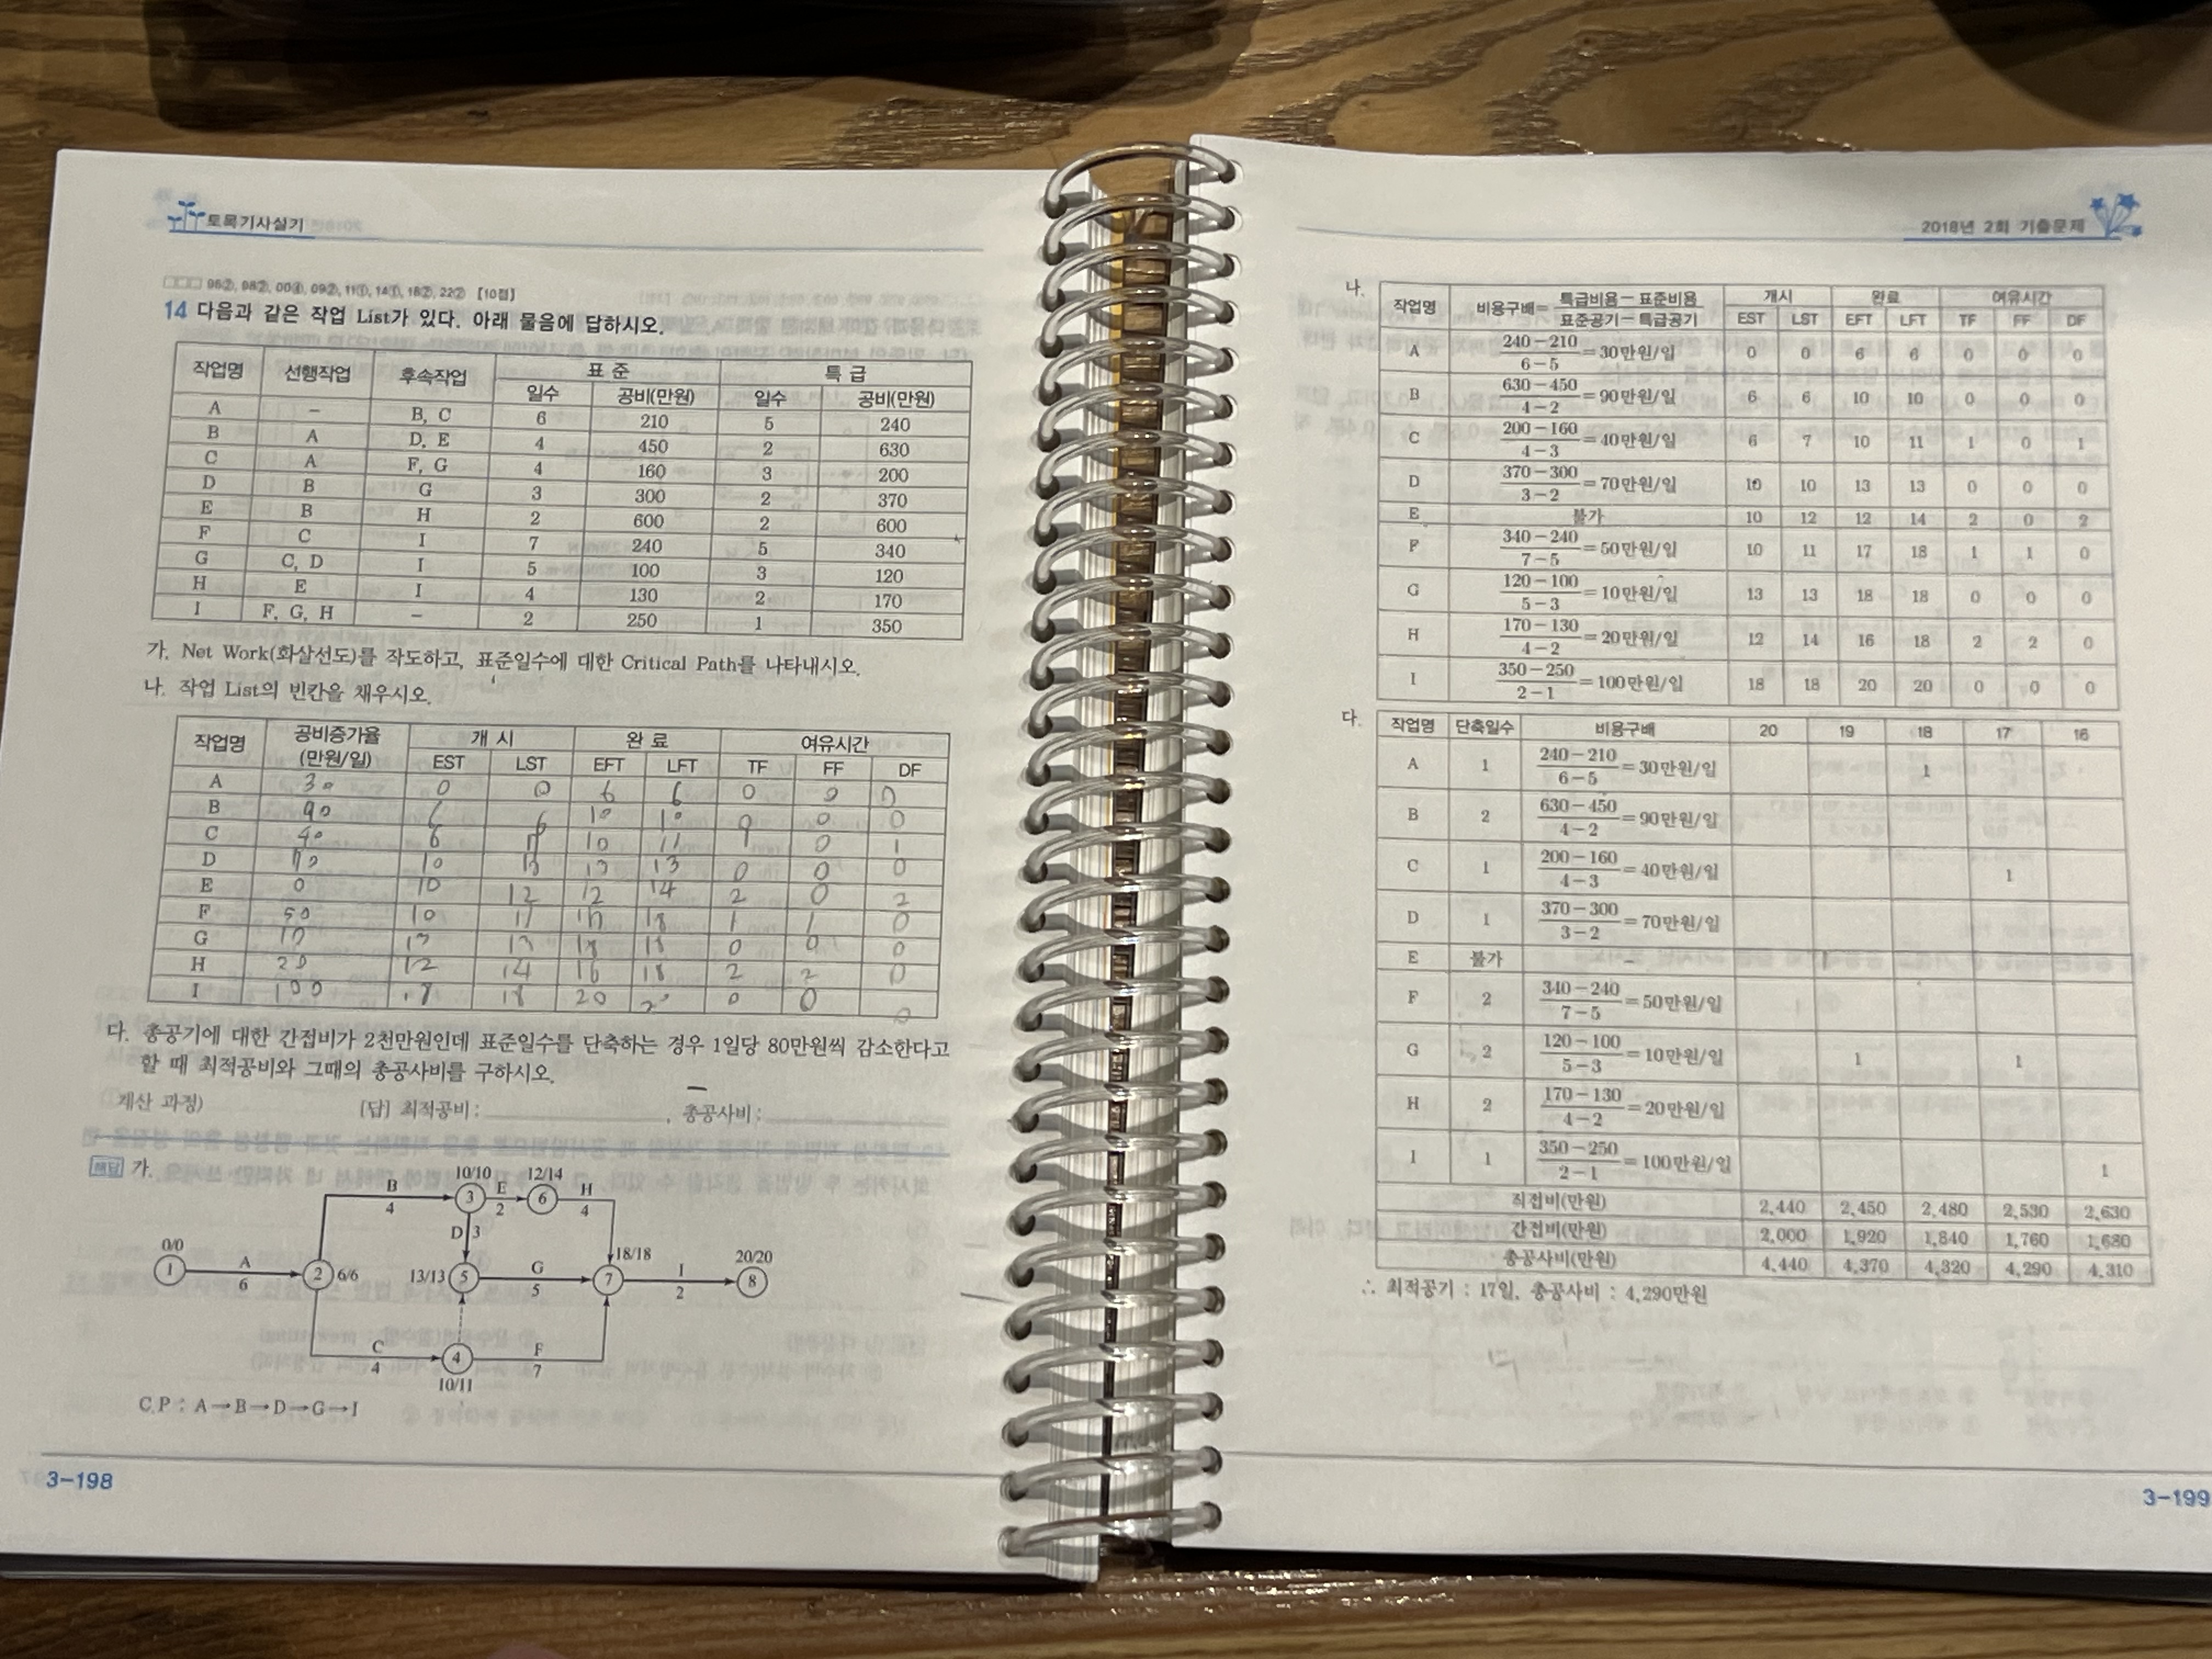 토목기사실기
96②, 98②, 00④, 09②, 11①, 14①, 18②, 22② 【10점】
14 다음과 같은 작업 List가 있다. 아래 물음에 답하시오.
작업명 선행작업 후속작업 표 준 특 급
일수 공비(만원) 일수 공비(만원)
A - B, C 6 210 5 240
B A D, E 4 450 2 630
C A F, G 4 160 3 200
D B G 3 300 2 370
E B H 2 600 2 600
F C I 7 240 5 340
G C, D I 5 100 3 120
H E I 4 130 2 170
I F, G, H - 2 250 1 350
가. Net Work(화살선도)를 작도하고, 표준일수에 대한 Critical Path를 나타내시오.
나. 작업 List의 빈칸을 채우시오.
작업명 공비증가율 (만원/일) 개 시 완 료 여유시간
EST LST EFT LFT TF FF DF
A 30 0 0 6 6 0 0 0
B 90 6 6 10 10 0 0 0
C 40 6 10 11 1 0 1
D 70 10 13 13 0 0 0
E 0 10 12 12 14 2 0 2
F 50 10 11 17 18 1 1 0
G 10 13 13 18 18 0 0 0
H 20 12 14 16 18 2 2 0
I 100 18 18 20 0 0 0
다. 총공기에 대한 간접비가 2천만원인데 표준일수를 단축하는 경우 1일당 80만원씩 감소한다고
할 때 최적공비와 그때의 총공사비를 구하시오.
계산 과정) [답] 최적공비 : , 총공사비 :
해답 가.
10/10 12/14
B 4 3 E 2 6 H 4
D 3
0/0 18/18 20/20
1 A 6 2 6/6 13/13 5 G 5 7 I 2 8
C 4 4 F 7
10/11
C.P : A→B→D→G→I
3-198
2018년 2회 기출문제
나.
작업명 비용구배= 특급비용-표준비용 / 표준공기-특급공기 개시 완료 여유시간
EST LST EFT LFT TF FF DF
A 240-210 / 6-5 =30만원/일 0 0 6 6 0 0 0
B 630-450 / 4-2 =90만원/일 6 6 10 10 0 0 0
C 200-160 / 4-3 =40만원/일 6 7 10 11 1 0 1
D 370-300 / 3-2 =70만원/일 10 10 13 13 0 0 0
E 불가 10 12 12 14 2 0 2
F 340-240 / 7-5 =50만원/일 10 11 17 18 1 1 0
G 120-100 / 5-3 =10만원/일 13 13 18 18 0 0 0
H 170-130 / 4-2 =20만원/일 12 14 16 18 2 2 0
I 350-250 / 2-1 =100만원/일 18 18 20 20 0 0 0
다.
작업명 단축일수 비용구배 20 19 18 17 16
A 1 240-210 / 6-5 =30만원/일 1
B 2 630-450 / 4-2 =90만원/일
C 1 200-160 / 4-3 =40만원/일 1
D 1 370-300 / 3-2 =70만원/일
E 불가 -
F 2 340-240 / 7-5 =50만원/일
G 2 120-100 / 5-3 =10만원/일 1 1
H 2 170-130 / 4-2 =20만원/일
I 1 350-250 / 2-1 =100만원/일 1
직접비(만원) 2,440 2,450 2,480 2,530 2,630
간접비(만원) 2,000 1,920 1,840 1,760 1,680
총공사비(만원) 4,440 4,370 4,320 4,290 4,310
∴ 최적공기 : 17일, 총공사비 : 4,290만원
3-199